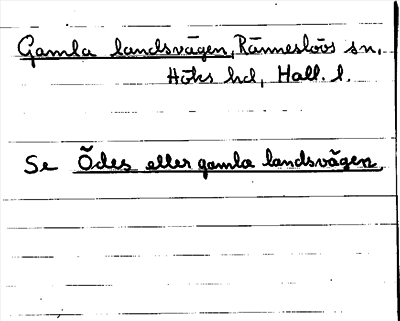 Gamla landsvägen, Ränneslöös sn,
Höks hd, Hall. l.
Se Ödes eller gamla landsvägen